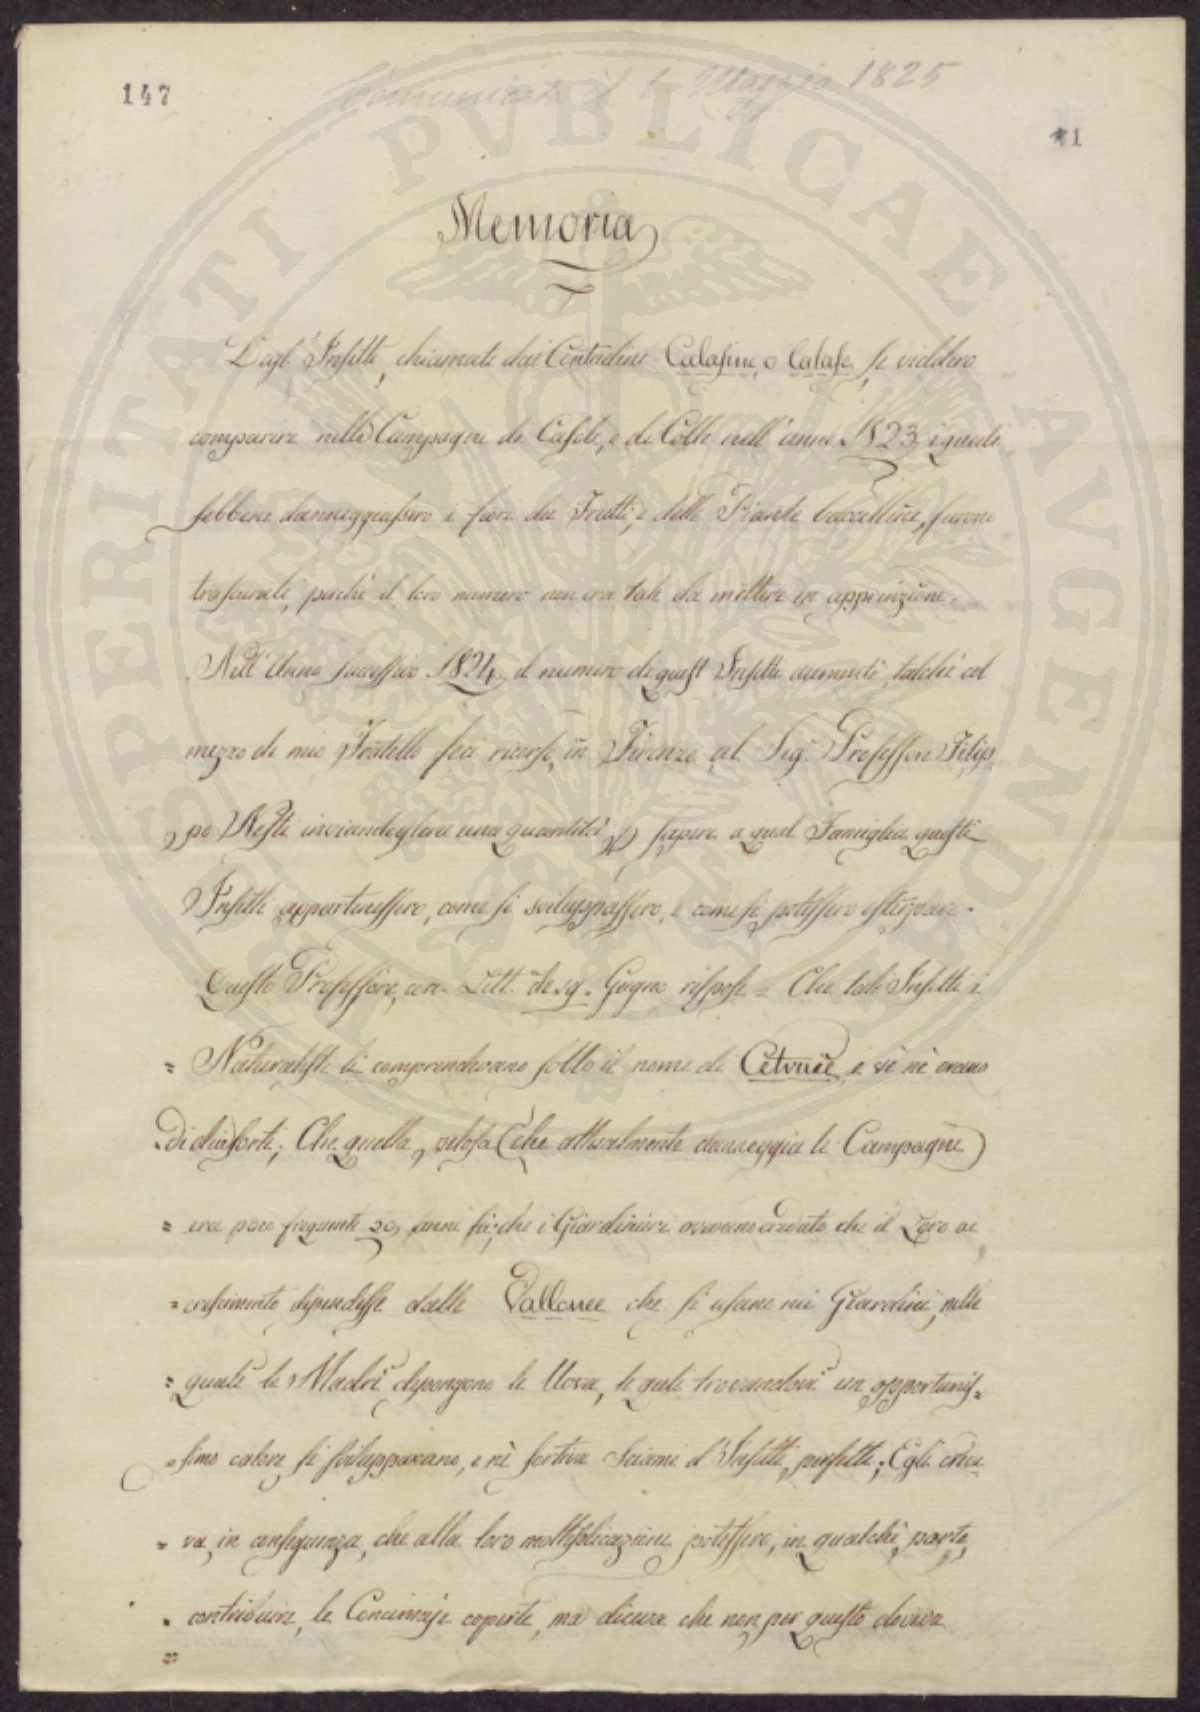 147
Comunicata il 1 Maggio 1825
1
Memoria
Degl' Insetti, chiamati dai Contadini Calafine, o Calafe, si viddero
comparire nelle Campagne di Casole, e di Colle nell' anno 1823, i quali
sebbene danneggiassero i fiori dei Frutti, e delle Piante baccelline, furono
trascurati, perchè il loro numero non era tale da mettere in apprensione.
Nell' Anno successivo 1824, il numero di quest' Insetti aumentò, talchè col
mezzo di mio Fratello feci ricorso, in Firenze al Sig.r Professore Filip
po Nesti inviandogliene una quantità p sapere a qual Famiglia questi
Insetti appartenessero, come si sviluppassero, e come si potessero estirpare.
Questo Professore, con Lett. de 19. Giugno rispose = Che tali Insetti i
= Naturalisti li comprendevano sotto il nome di Cetonie, e vi nè erano
di due sorti; Che quella pelosa (che attualmente danneggia le Campagne)
= era poco frequente 20 anni fà; che i Giardinieri avevano creduto che il Loro ac
= crescimento dipendesse dalle Vallonee che si usano nei Giardini, nelle
= quali le Madri depongono le Uova, le quali trovandovi un opportunis=
= simo calore si sviluppavano, e nè sortiva Sciami d' Insetti perfetti; Egli crede
= va, in conseguenza, che alla loro moltiplicazione potessero, in qualchè parte,
= contribuire, le Concimaje coperte, ma diceva che non per questo doveva
=
SPERITATI PVBLICAE AVGENDAE